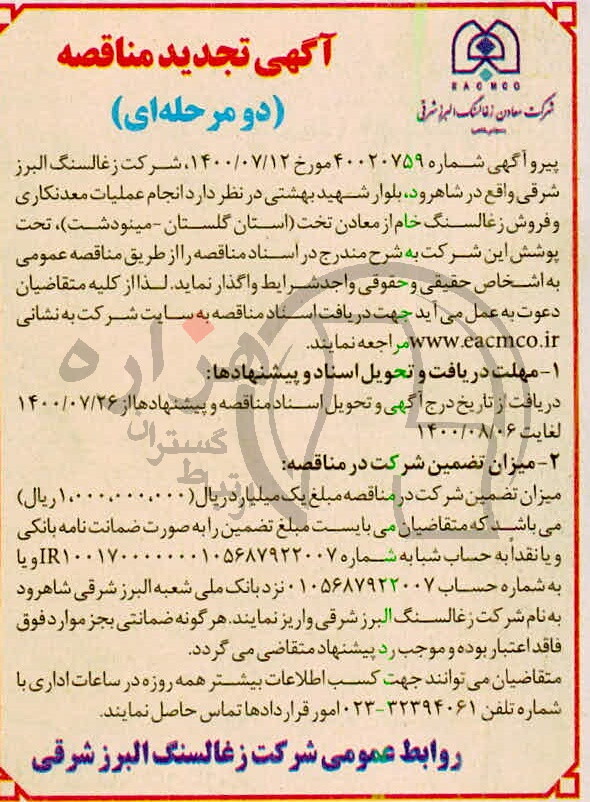 آگهی تجدید مناقصه
(دو مرحله‌ای)
EACMCO
شرکت معادن زغالسنگ البرز شرقی
پیرو آگهی شماره ۴۰۰۲۰۷۵۹ مورخ ۱۴۰۰/۰۷/۱۲، شرکت زغالسنگ البرز
شرقی واقع در شاهرود، بلوار شهید بهشتی در نظر دارد انجام عملیات معدنکاری
و فروش زغالسنگ خام از معادن تخت (استان گلستان -مینودشت)، تحت
پوشش این شرکت به شرح مندرج در اسناد مناقصه را از طریق مناقصه عمومی
به اشخاص حقیقی و حقوقی واجد شرایط واگذار نماید. لذا از کلیه متقاضیان
دعوت به عمل می آید جهت دریافت اسناد مناقصه به سایت شرکت به نشانی
www.eacmco.ir مراجعه نمایند.
۱- مهلت دریافت و تحویل اسناد و پیشنهادها:
دریافت از تاریخ درج آگهی و تحویل اسناد مناقصه و پیشنهادها از ۱۴۰۰/۰۷/۲۶
لغایت ۱۴۰۰/۰۸/۰۶
۲- میزان تضمین شرکت در مناقصه:
میزان تضمین شرکت در مناقصه مبلغ یک میلیارد ریال (۱,۰۰۰,۰۰۰,۰۰۰ ریال)
می باشد که متقاضیان می بایست مبلغ تضمین را به صورت ضمانت نامه بانکی
و یا نقداً به حساب شبا به شماره IR۱۰۰۱۷۰۰۰۰۰۰۰۱۰۵۶۸۷۹۲۲۰۰۷ و یا
به شماره حساب ۰۱۰۵۶۸۷۹۲۲۰۰۷ نزد بانک ملی شعبه البرز شرقی شاهرود
به نام شرکت زغالسنگ البرز شرقی واریز نمایند. هر گونه ضمانتی بجز موارد فوق
فاقد اعتبار بوده و موجب رد پیشنهاد متقاضی می گردد.
متقاضیان می توانند جهت کسب اطلاعات بیشتر همه روزه در ساعات اداری با
شماره تلفن ۳۲۳۹۴۰۶۱-۰۲۳ امور قراردادها تماس حاصل نمایند.
روابط عمومی شرکت زغالسنگ البرز شرقی
هزاره
گستران
ارتباط